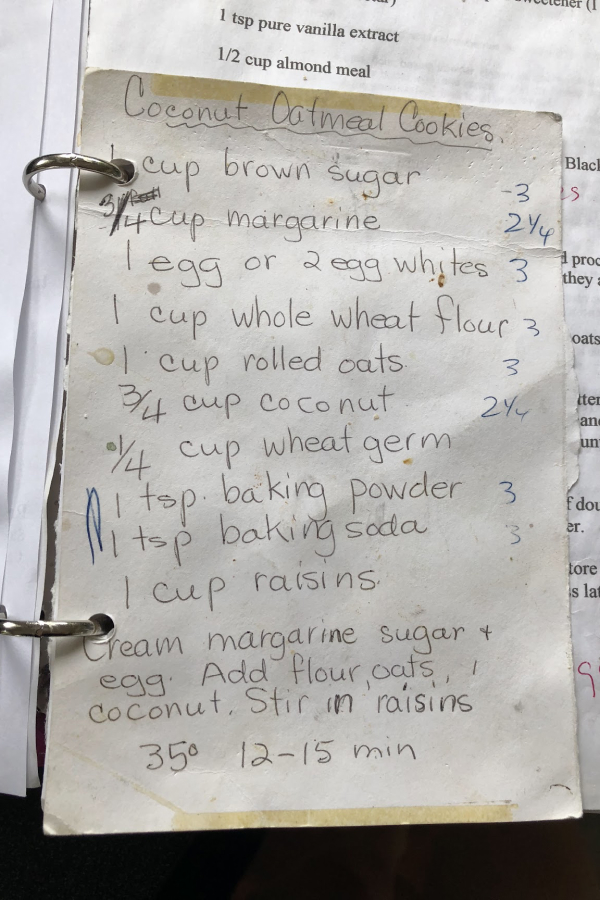 1 tsp pure vanilla extract
1/2 cup almond meal
Coconut Oatmeal Cookies.
1 cup brown sugar -3
3/4 cup margarine 2 1/4
1 egg or 2 egg whites 3
1 cup whole wheat flour 3
1 cup rolled oats 3
3/4 cup coconut 2 1/4
1/4 cup wheat germ
1 tsp. baking powder 3
1 tsp baking soda 3
1 cup raisins
Cream margarine sugar +
egg. Add flour, oats,
coconut. Stir in raisins
35° 12-15 min
Black
they
oats
er.